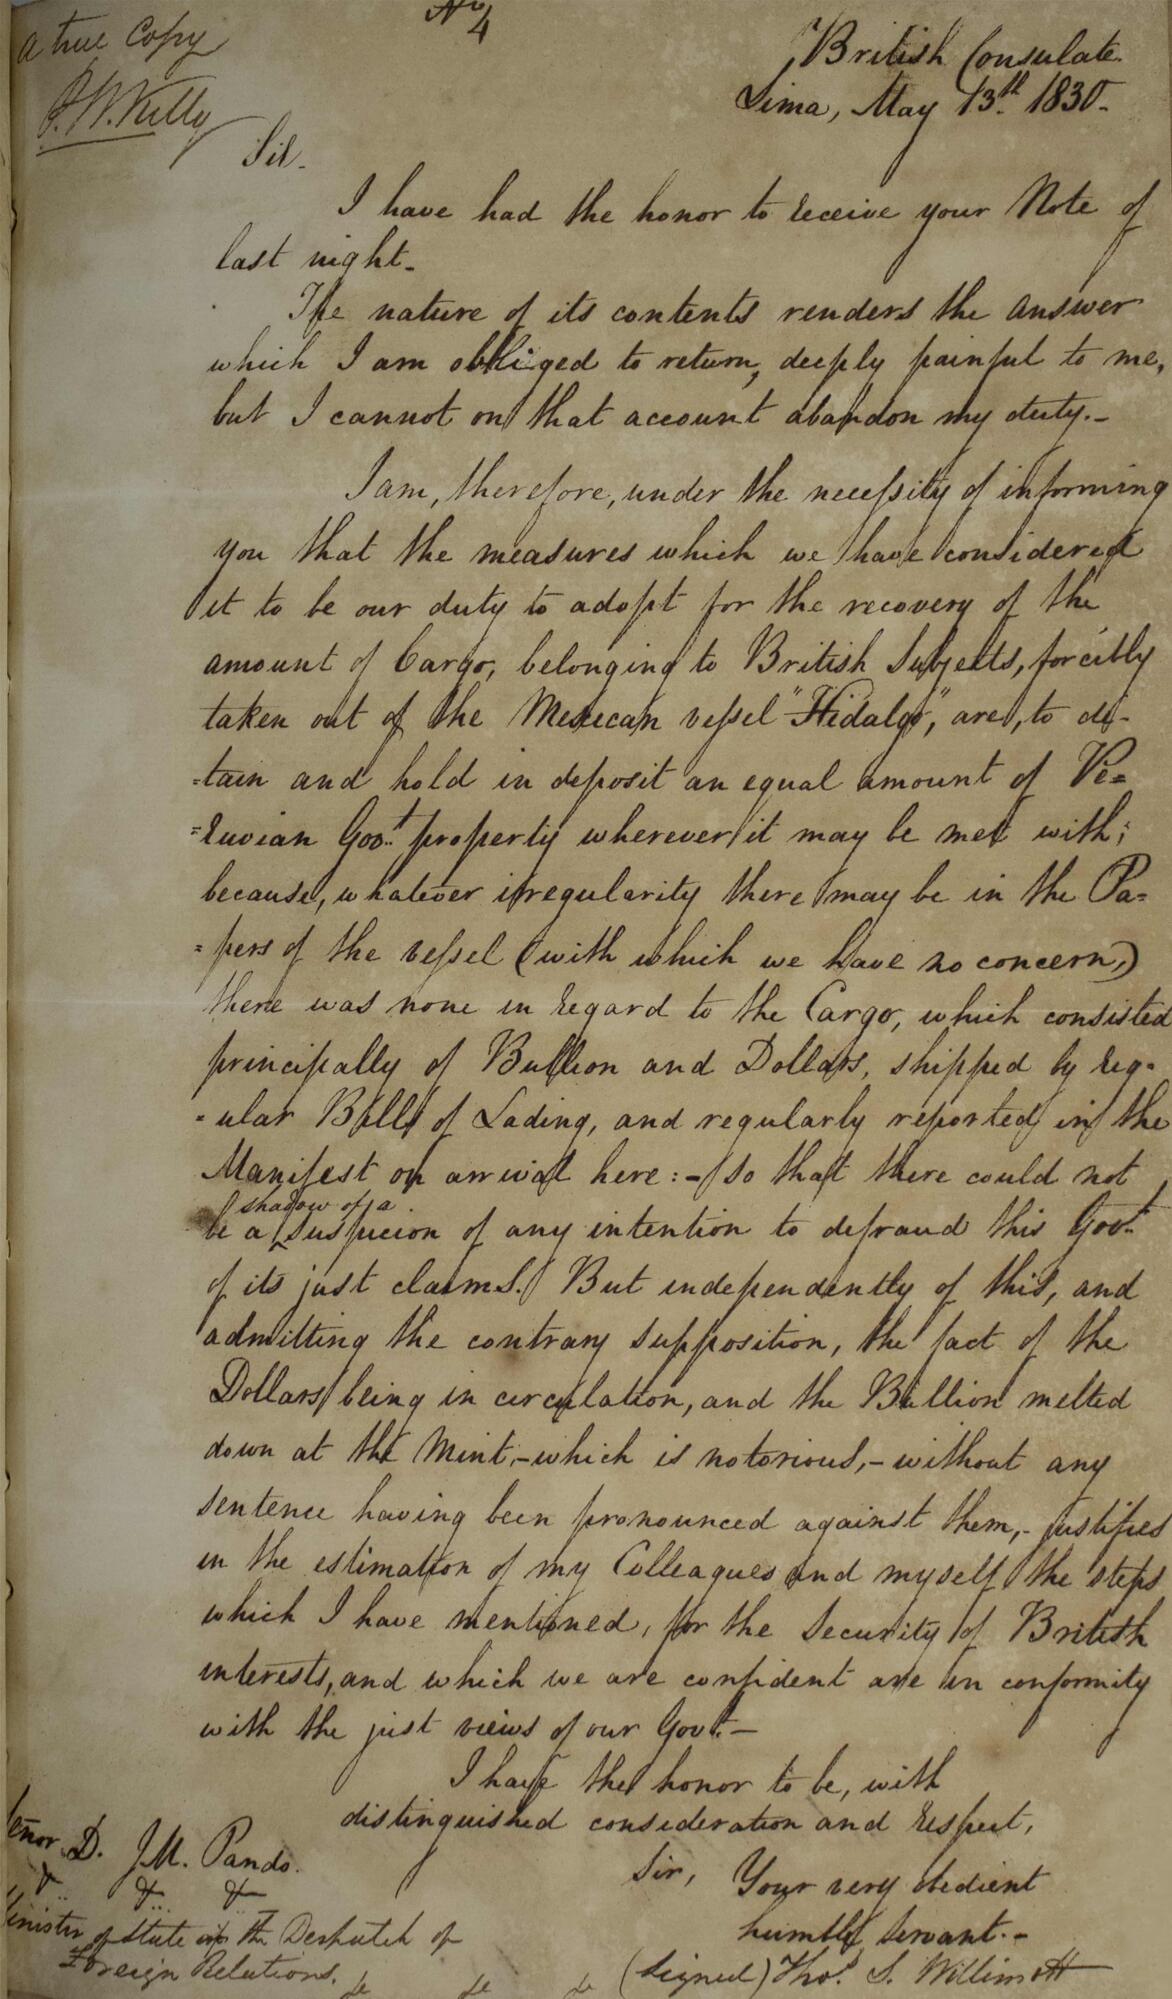 No. 4
a true Copy
British Consulate.
Lima, May 13th. 1830.
Sir.
I have had the honor to receive your Note of
last night.
The nature of its contents renders the answer
which I am obliged to return, deeply painful to me,
but I cannot on that account abandon my duty.-
I am, therefore, under the necessity of informing
you that the measures which we have considered
it to be our duty to adopt for the recovery of the
amount of Cargo, belonging to British Subjects, forcibly
taken out of the Mexican vessel "Hidalgo", are, to de-
=tain and hold in deposit an equal amount of Pe=
=ruvian Govt. property wherever it may be met with;
because, whatever irregularity there may be in the Pa=
=pers of the vessel (with which we have no concern,)
there was none in regard to the Cargo, which consisted
principally of Bullion and Dollars, shipped by reg-
-ular Bills of Lading, and regularly reported in the
Manifest on arrival here:- so that there could not
be a shadow of a suspicion of any intention to defraud this Govt.
of its just claims. But independently of this, and
admitting the contrary supposition, the fact of the
Dollars being in circulation, and the Bullion melted
down at the Mint,-which is notorious,-without any
sentence having been pronounced against them,- justifies
in the estimation of my Colleagues and myself the steps
which I have mentioned, for the security of British
interests, and which we are confident are in conformity
with the just views of our Govt.-
I have the honor to be, with
distinguished consideration and respect,
Sir, Your very obedient
humble servant.-
(signed) Thos. S. Willimott
Señor D. J.M. Pando.
& & &
Minister of State in the Despatch of
Foreign Relations.